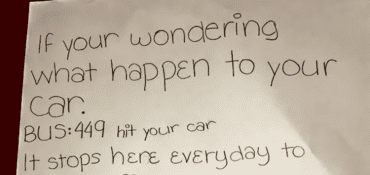 If your wondering
what happen to your
car.
BUS:449 hit your car
It stops here everyday to